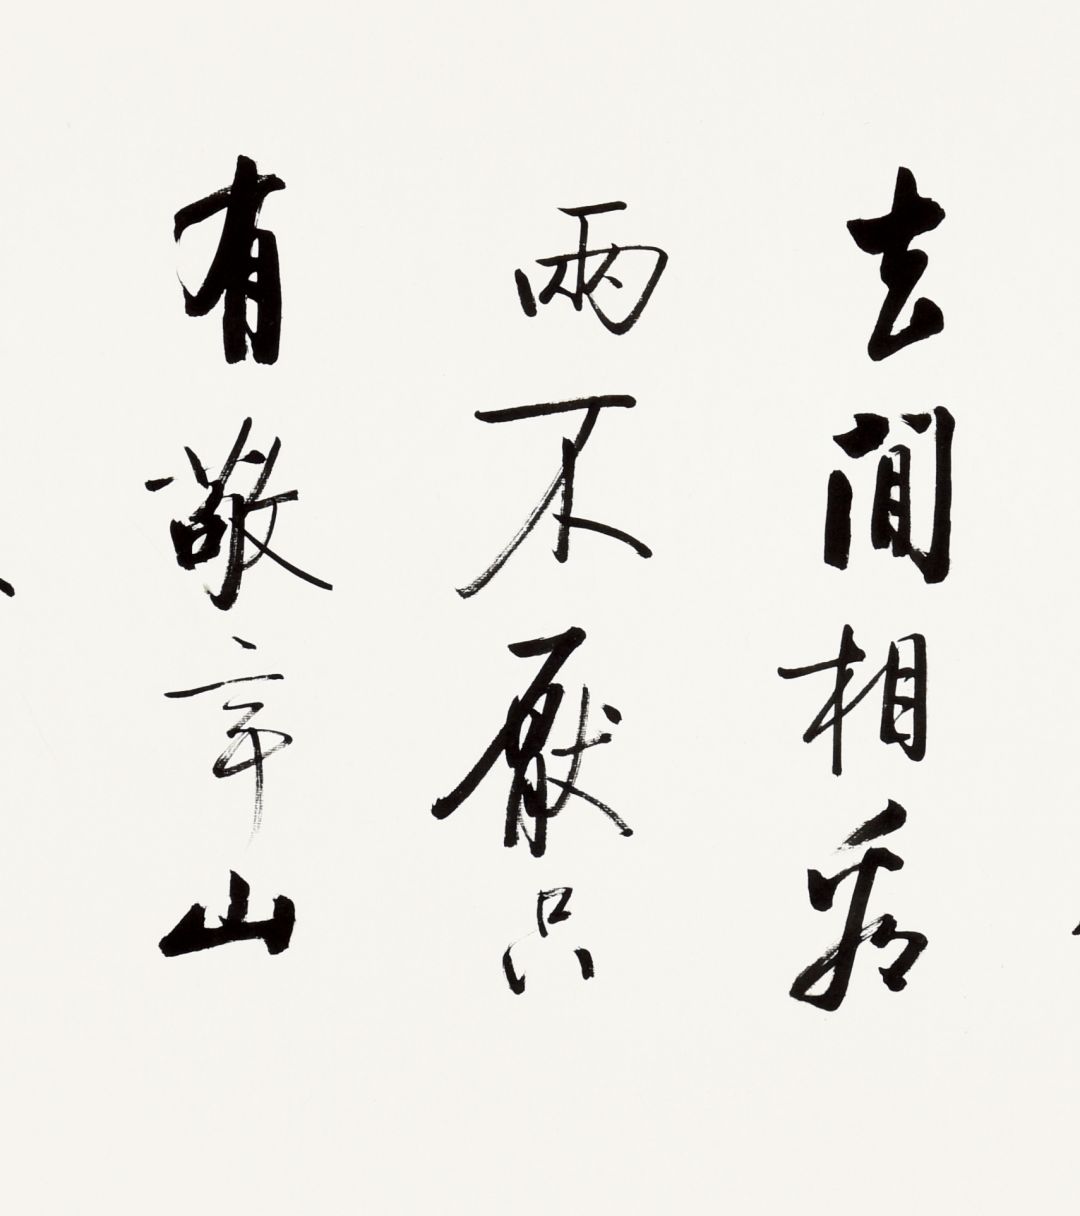 去閒相看
兩不厭只
有敬亭山